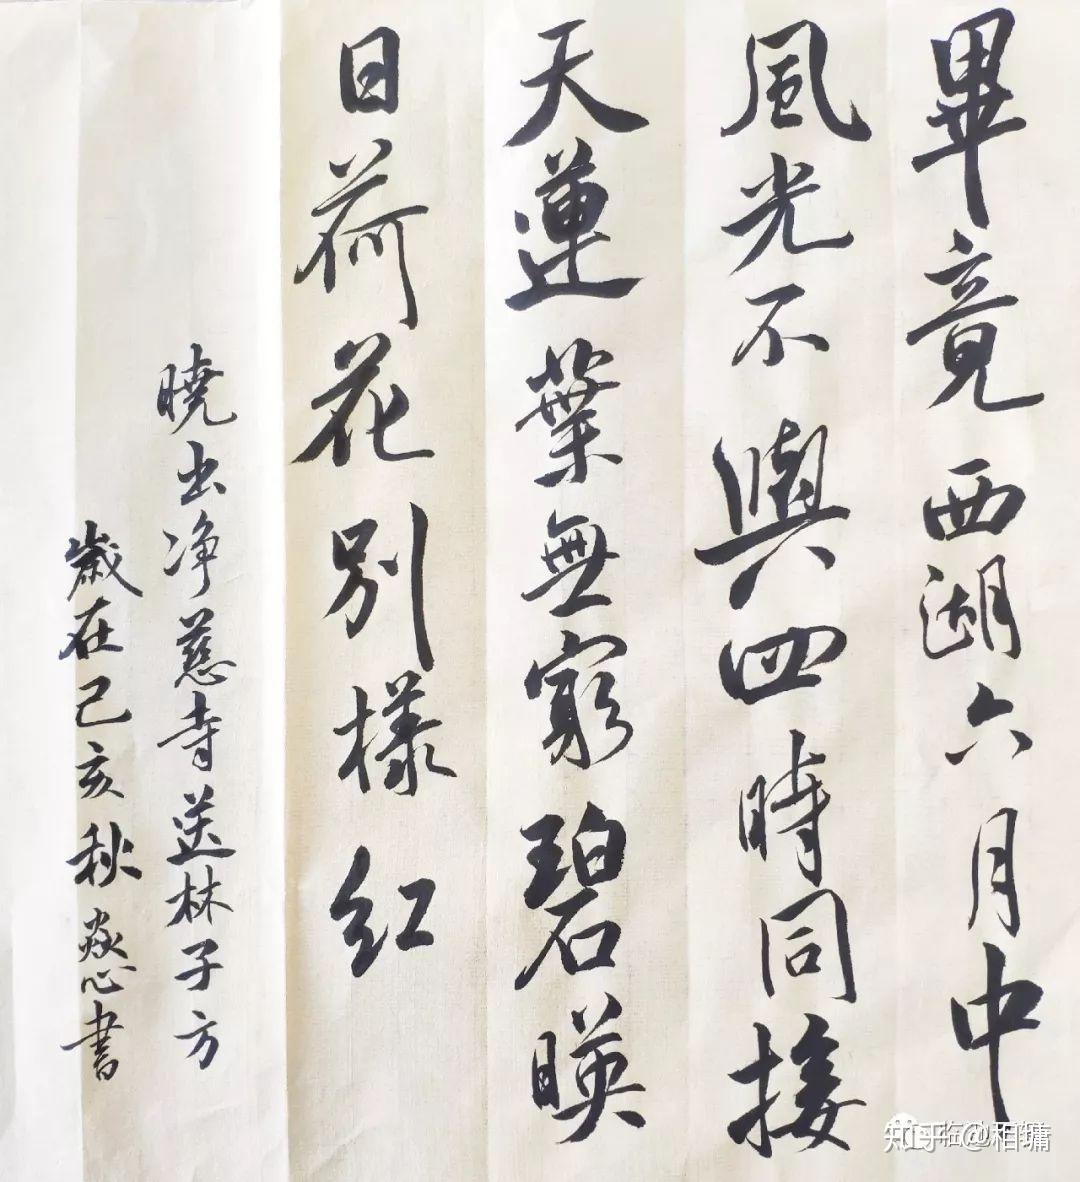 畢竟西湖六月中
風光不與四時同接
天蓮葉無窮碧暎
日荷花別樣红
曉出净慈寺送林子方
歲在己亥秋焱心書
知乎 @相墉